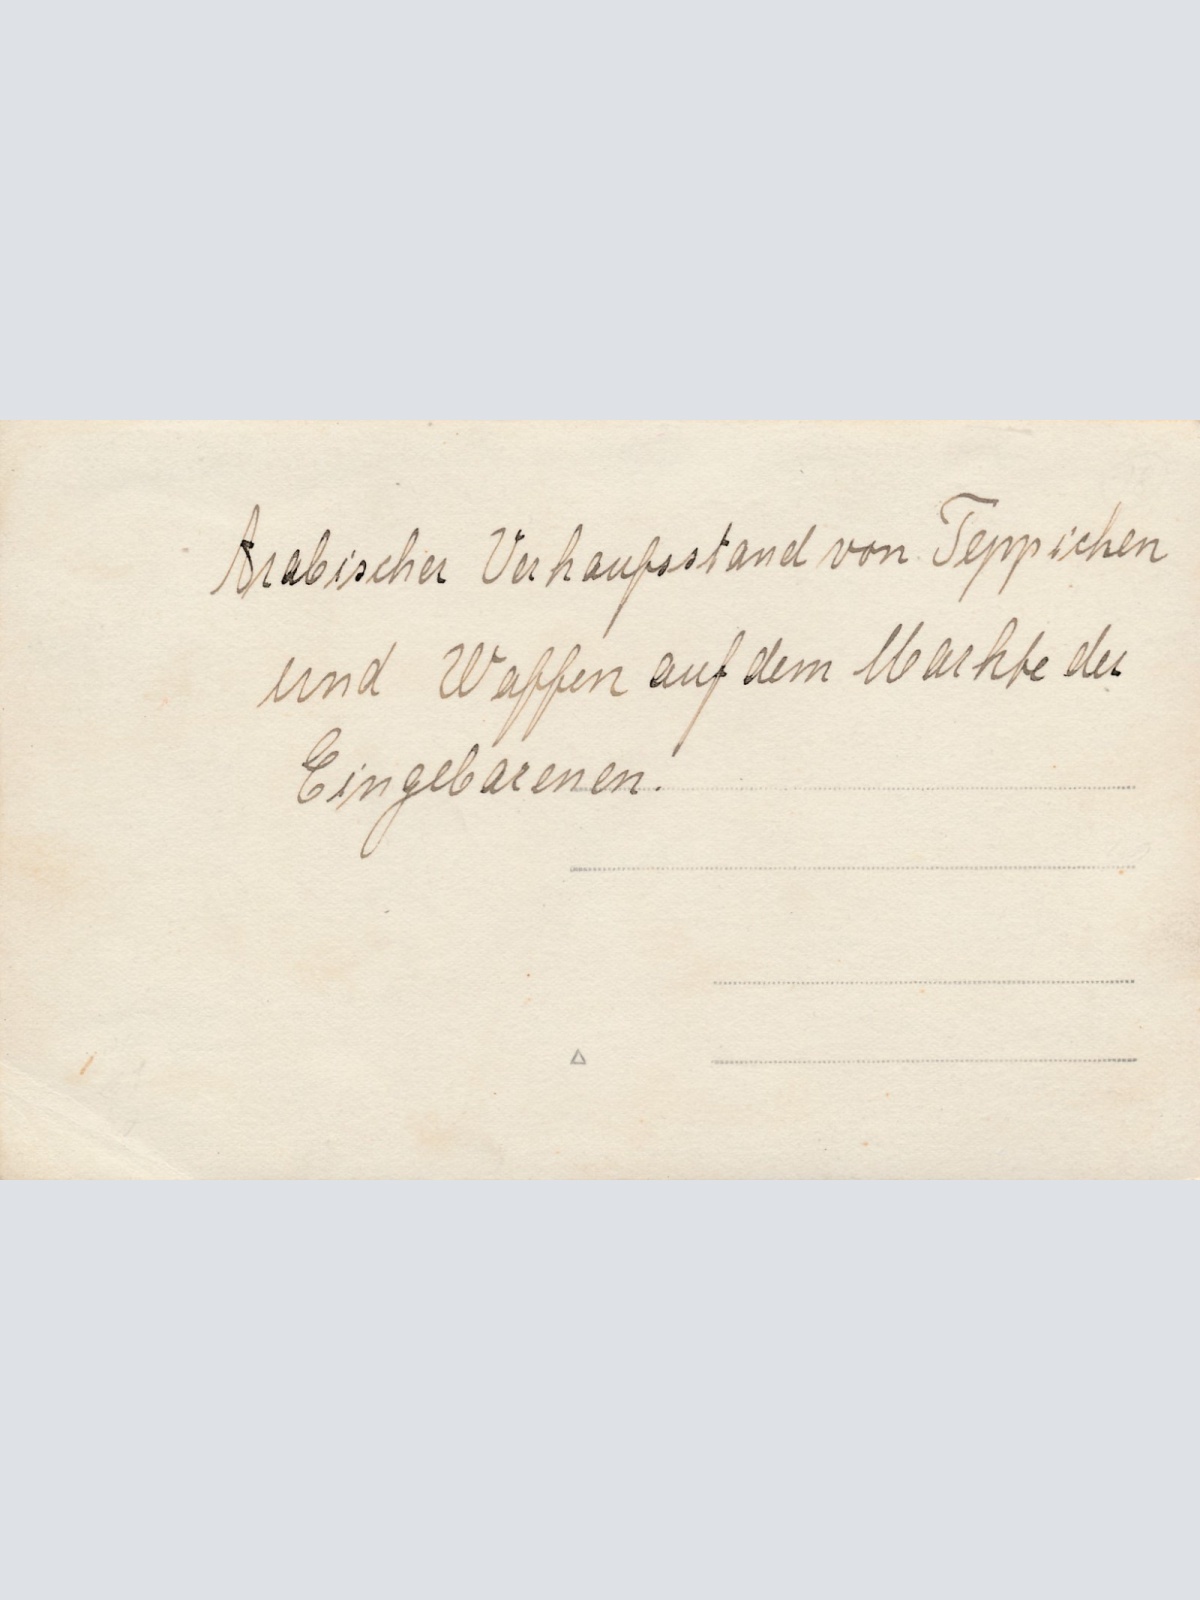 Arabischer Verkaufsstand von Teppichen
und Waffen auf dem Markte der
Eingebarenen.